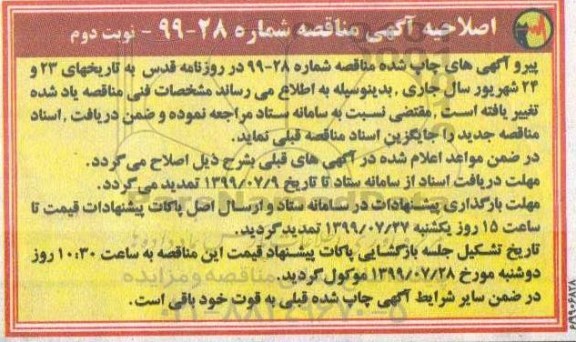 اصلاحیه آگهی مناقصه شماره ۲۸-۹۹ - نوبت دوم
پیرو آگهی های چاپ شده مناقصه شماره ۲۸-۹۹ در روزنامه قدس به تاریخهای ۲۳ و
۲۴ شهریور سال جاری , بدینوسیله به اطلاع می رساند مشخصات فنی مناقصه یاد شده
تغییر یافته است , مقتضی نسبت به سامانه ستاد مراجعه نموده و ضمن دریافت , اسناد
مناقصه جدید را جایگزین اسناد مناقصه قبلی نماید.
در ضمن مواعد اعلام شده در آگهی های قبلی بشرح ذیل اصلاح می گردد.
مهلت دریافت اسناد از سامانه ستاد تا تاریخ ۱۳۹۹/۰۷/۹ تمدید می گردد.
مهلت بارگذاری پیشنهادات در سامانه ستاد و ارسال اصل پاکات پیشنهادات قیمت تا
ساعت ۱۵ روز یکشنبه ۱۳۹۹/۰۷/۲۷ تمدید گردید.
تاریخ تشکیل جلسه بازگشایی پاکات پیشنهاد قیمت این مناقصه به ساعت ۱۰:۳۰ روز
دوشنبه مورخ ۱۳۹۹/۰۷/۲۸ موکول گردید.
در ضمن سایر شرایط آگهی چاپ شده قبلی به قوت خود باقی است.
۰۲۱-۸۸۳۴۹۶۷۰-۵
۶/۹۹۰۶۸۲۸